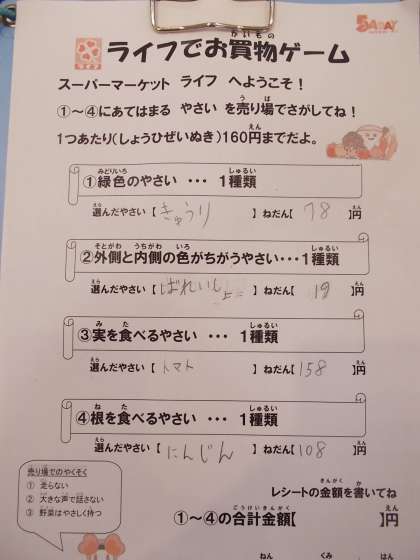 5 A DAY
ライフ
ライフでお買物ゲーム
かいもの
スーパーマーケット ライフ へようこそ！
①～④にあてはまる やさいを売り場でさがしてね！
1つあたり(しょうひぜいぬき)160円までだよ。
①緑色のやさい ・・・ 1種類
選んだやさい【 きゅうり 】 ねだん【 78 】円
②外側と内側の色がちがうやさい・・・1種類
選んだやさい【 ばれいしょ 】 ねだん【 19 】円
③実を食べるやさい ・・・ 1種類
選んだやさい【 トマト 】 ねだん【 158 】円
④根を食べるやさい ・・・ 1種類
選んだやさい【 にんじん 】 ねだん【 108 】円
売り場でのやくそく
① 走らない
② 大きな声で話さない
③ 野菜はやさしく持つ
レシートの金額を書いてね
①～④の合計金額【 】円